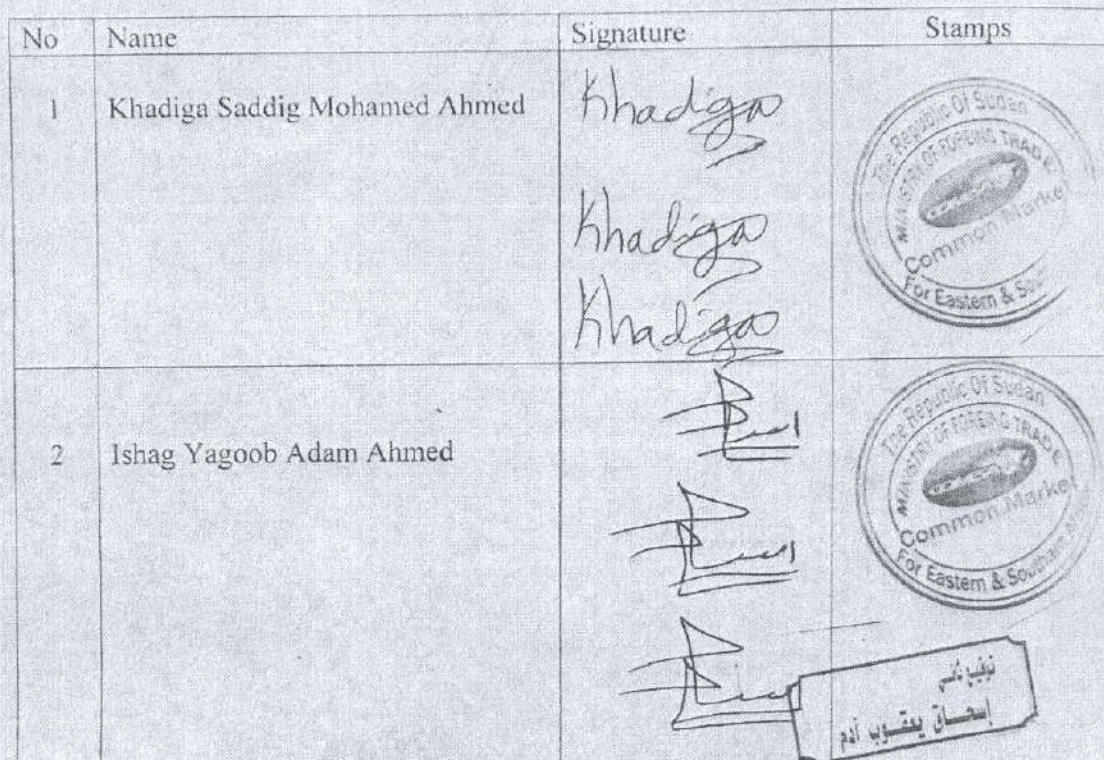 No Name Signature Stamps
1 Khadiga Saddig Mohamed Ahmed Khadiga
Khadiga
Khadiga
The Republic Of Sudan
MINISTRY OF FOREING TRADE
Common Market
For Eastern & Sou
2 Ishag Yagoob Adam Ahmed
The Republic Of Sudan
MINISTRY OF FOREING TRADE
Common Market
For Eastern & Southern
توقيع ثاني
إسحاق يعقوب آدم